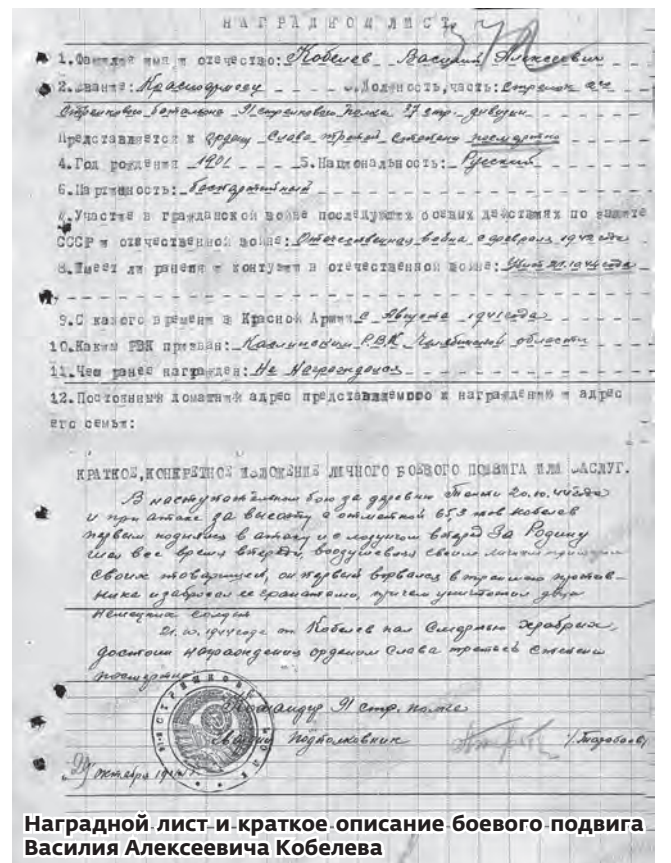 НАГРАДНОЙ ЛИСТ
1. Фамилия имя и отечество: Кобелев Василий Алексеевич
2. звание: Красноармеец Должность, часть: стрелок
стрелкового батальона 71 стрелкового полка 27 стр. дивизии
Представляется к ордену Слава третьей степени посмертно
4. Год рождения 1901 5. Национальность: Русский
6. Партийность: беспартийный
Участие в гражданской войне последующих боевых действиях по защите
СССР и отечественной войне: Отечественная война с февраля 1942 года
8. Имеет ли ранения и контузии в отечественной войне:
9. С какого времени в Красной Армии с Августа 1941 года
10. Каким РВК призван: РВК Челябинской области
11. Чем ранее награжден: Не Награждался
12. Постоянный домашний адрес представляемого к награждению и адрес
его семьи:
КРАТКОЕ, КОНКРЕТНОЕ ИЗЛОЖЕНИЕ ЛИЧНОГО БОЕВОГО ПОДВИГА ИЛИ ЗАСЛУГ.
В наступательном бою за деревню 20.10.44 года
и при атаке за высоту с отметкой 65,3 тов Кобелев
первым поднялся в атаку и с лозунгом вперед За Родину
шел все время впереди, воодушевляя своим личным примером
своих товарищей, он первый ворвался в траншею против-
ника и забросал ее гранатами, причем уничтожил двух
немецких солдат
21.10.1944 года Кобелев пал Смертью храбрых,
достоин награждения орденом Слава третьей степени
посмертно
Командир 71 стр. полка
подполковник
октября 1944 г.
Наградной лист и краткое описание боевого подвига
Василия Алексеевича Кобелева